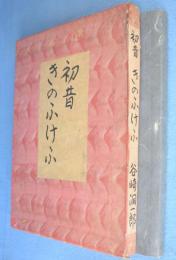 初昔
きのふけふ
初昔 きのふけふ 谷崎潤一郎